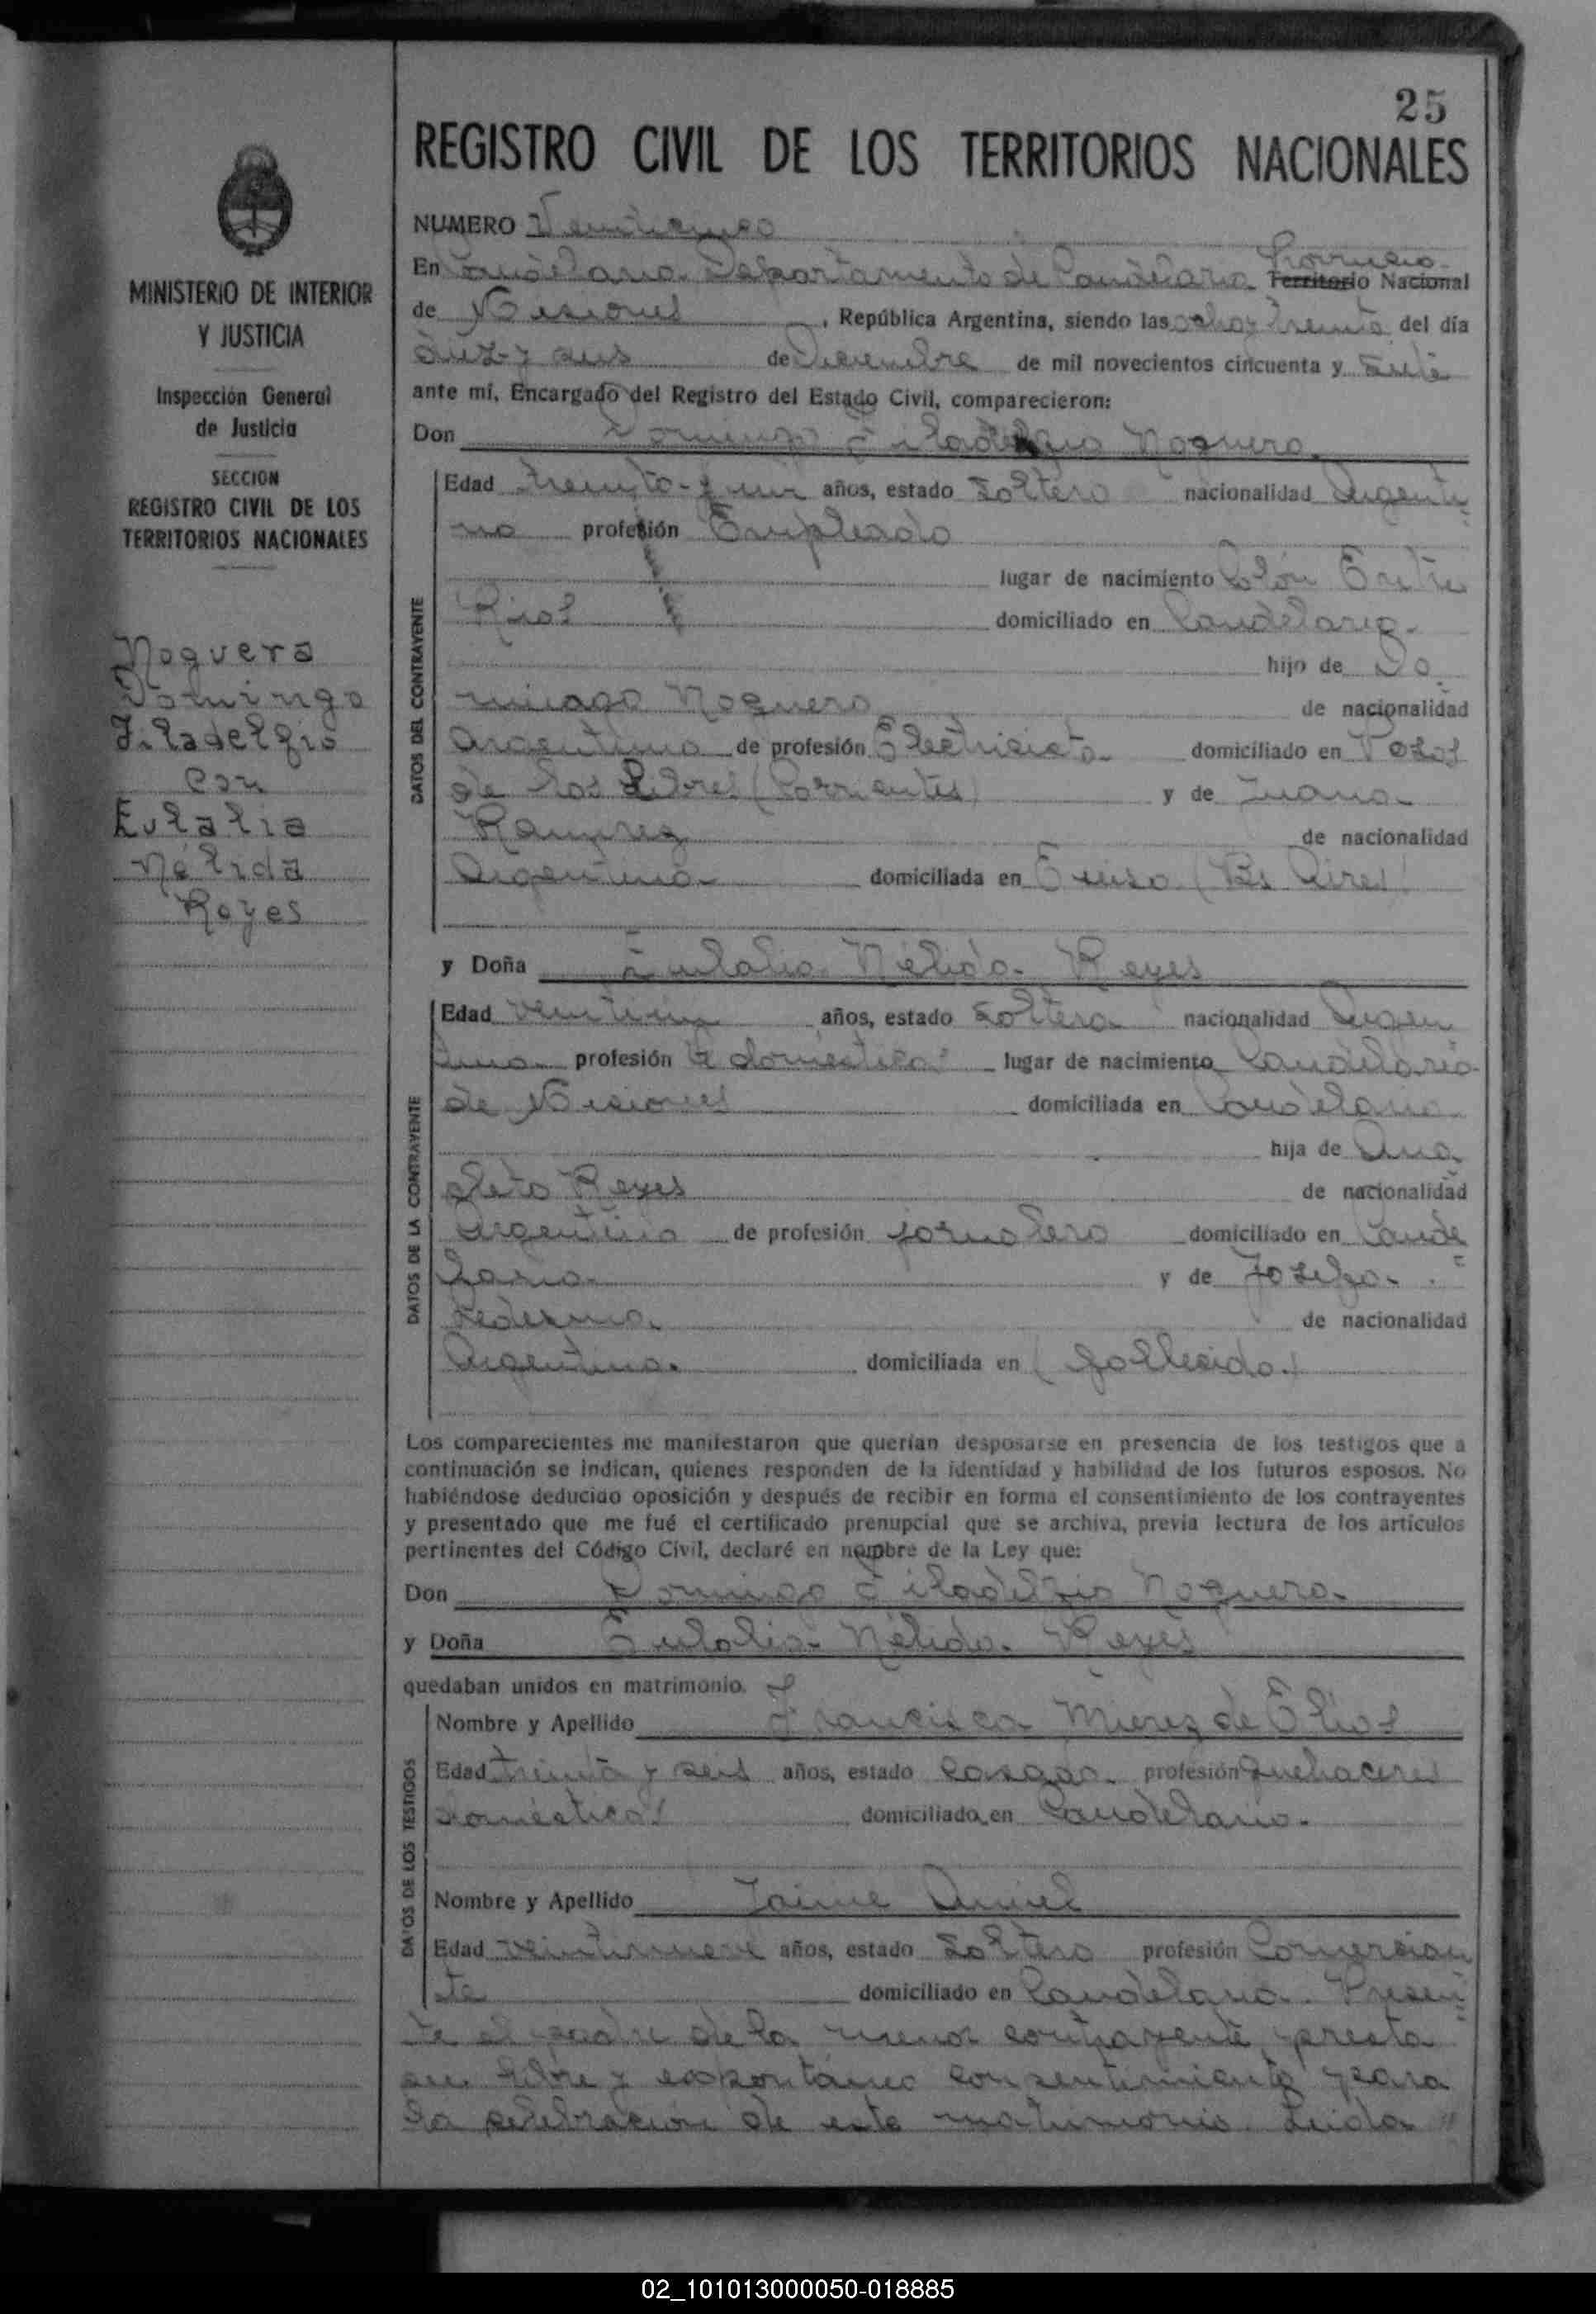 25
REGISTRO CIVIL DE LOS TERRITORIOS NACIONALES
MINISTERIO DE INTERIOR
Y JUSTICIA
Inspección General
de Justicia
SECCION
REGISTRO CIVIL DE LOS
TERRITORIOS NACIONALES
Noguera
Domingo
Filadelfio
con
Eulalia
Nélida
Reyes
NUMERO Veinticinco
Provincia
En Candelaria Departamento de Candelaria Territorio Nacional
de Misiones, República Argentina, siendo las ocho y treinta del día
diez y seis de Diciembre de mil novecientos cincuenta y siete
ante mí, Encargado del Registro del Estado Civil, comparecieron:
Don Domingo Filadelfio Noguera
DATOS DEL CONTRAYENTE
Edad treinta y un años, estado soltero nacionalidad Argenti
no profesión Empleado
lugar de nacimiento Colón Entre
Rios domiciliado en Candelaria
hijo de Do
mingo Noguera de nacionalidad
argentino de profesión Electricista domiciliado en Paso
de los Libres (Corrientes) y de Juana
Ramirez de nacionalidad
Argentina domiciliada en (Bs Aires)
y Doña Eulalia Nélida Reyes
DATOS DE LA CONTRAYENTE
Edad años, estado soltera nacionalidad Argen
tina profesión Q domésticos lugar de nacimiento Candelaria
de Misiones domiciliada en Candelaria
hija de Ana
cleto Reyes de nacionalidad
Argentino de profesión jornalero domiciliado en Cande
laria y de Josefa
Ledesma de nacionalidad
Argentina domiciliada en (fallecida)
Los comparecientes me manifestaron que querían desposarse en presencia de los testigos que a
continuación se indican, quienes responden de la identidad y habilidad de los futuros esposos. No
habiéndose deducido oposición y después de recibir en forma el consentimiento de los contrayentes
y presentado que me fué el certificado prenupcial que se archiva, previa lectura de los artículos
pertinentes del Código Civil, declaré en nombre de la Ley que:
Don Domingo Filadelfio Noguera
y Doña Eulalia Nélida Reyes
quedaban unidos en matrimonio.
DATOS DE LOS TESTIGOS
Nombre y Apellido Francisca Mierez de
Edad treinta y seis años, estado casada profesión quehaceres
domésticos domiciliada en Candelaria
Nombre y Apellido Jaime
Edad veintinueve años, estado soltero profesión Comercian
te domiciliado en Candelaria. Presen
te el padre de la menor contrayente, presta
su libre y expontáneo consentimiento para
la celebracion de este matrimonio. Leida
02_101013000050-018885